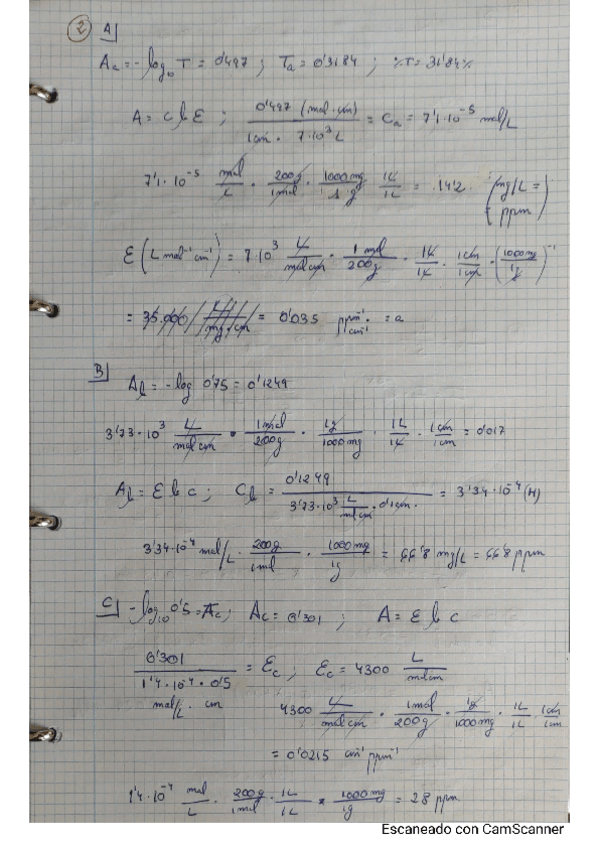 2 A]
Aₐ = -log₁₀ T = 0'497 ; Tₐ = 0'3184 ; %T = 31'84%
A = c b ε ; 0'497 (mol·cm) / 1cm · 7·10³ L = Cₐ = 7'1·10⁻⁵ mol/L
7'1·10⁻⁵ mol/L · 200g/1mol · 1000mg/1g · 1L/1L = 14'2 (mg/L = ppm)
ε (L mol⁻¹ cm⁻¹) = 7·10³ L/mol cm · 1mol/200g · 1L/1L · 1cm/1cm · (1000mg/1g)⁻¹
= 35.000 L/mg·cm = 0'035 ppm⁻¹·cm⁻¹ = a
B]
A_b = -log 0'75 = 0'1249
3'73·10³ L/mol cm · 1mol/200g · 1g/1000mg · 1L/1L · 1cm/1cm = 0'017
A_b = ε b c ; C_b = 0'1249 / 3'73·10³ L/mol cm · 0'1cm = 3'34·10⁻⁴ (M)
3'34·10⁻⁴ mol/L · 200g/1mol · 1000mg/1g = 66'8 mg/L = 66'8 ppm
C] -log₁₀ 0'5 = A_c ; A_c = 0'301 ; A = ε b c
0'301 / 1'4·10⁻⁴ · 0'5 = ε_c ; ε_c = 4300 L/mol cm
mol/L · cm
4300 L/mol cm · 1mol/200g · 1g/1000mg · 1L/1L · 1cm/1cm
= 0'0215 cm⁻¹ ppm⁻¹
1'4·10⁻⁴ mol/L · 200g/1mol · 1L/1L · 1000mg/1g = 28 ppm
Escaneado con CamScanner